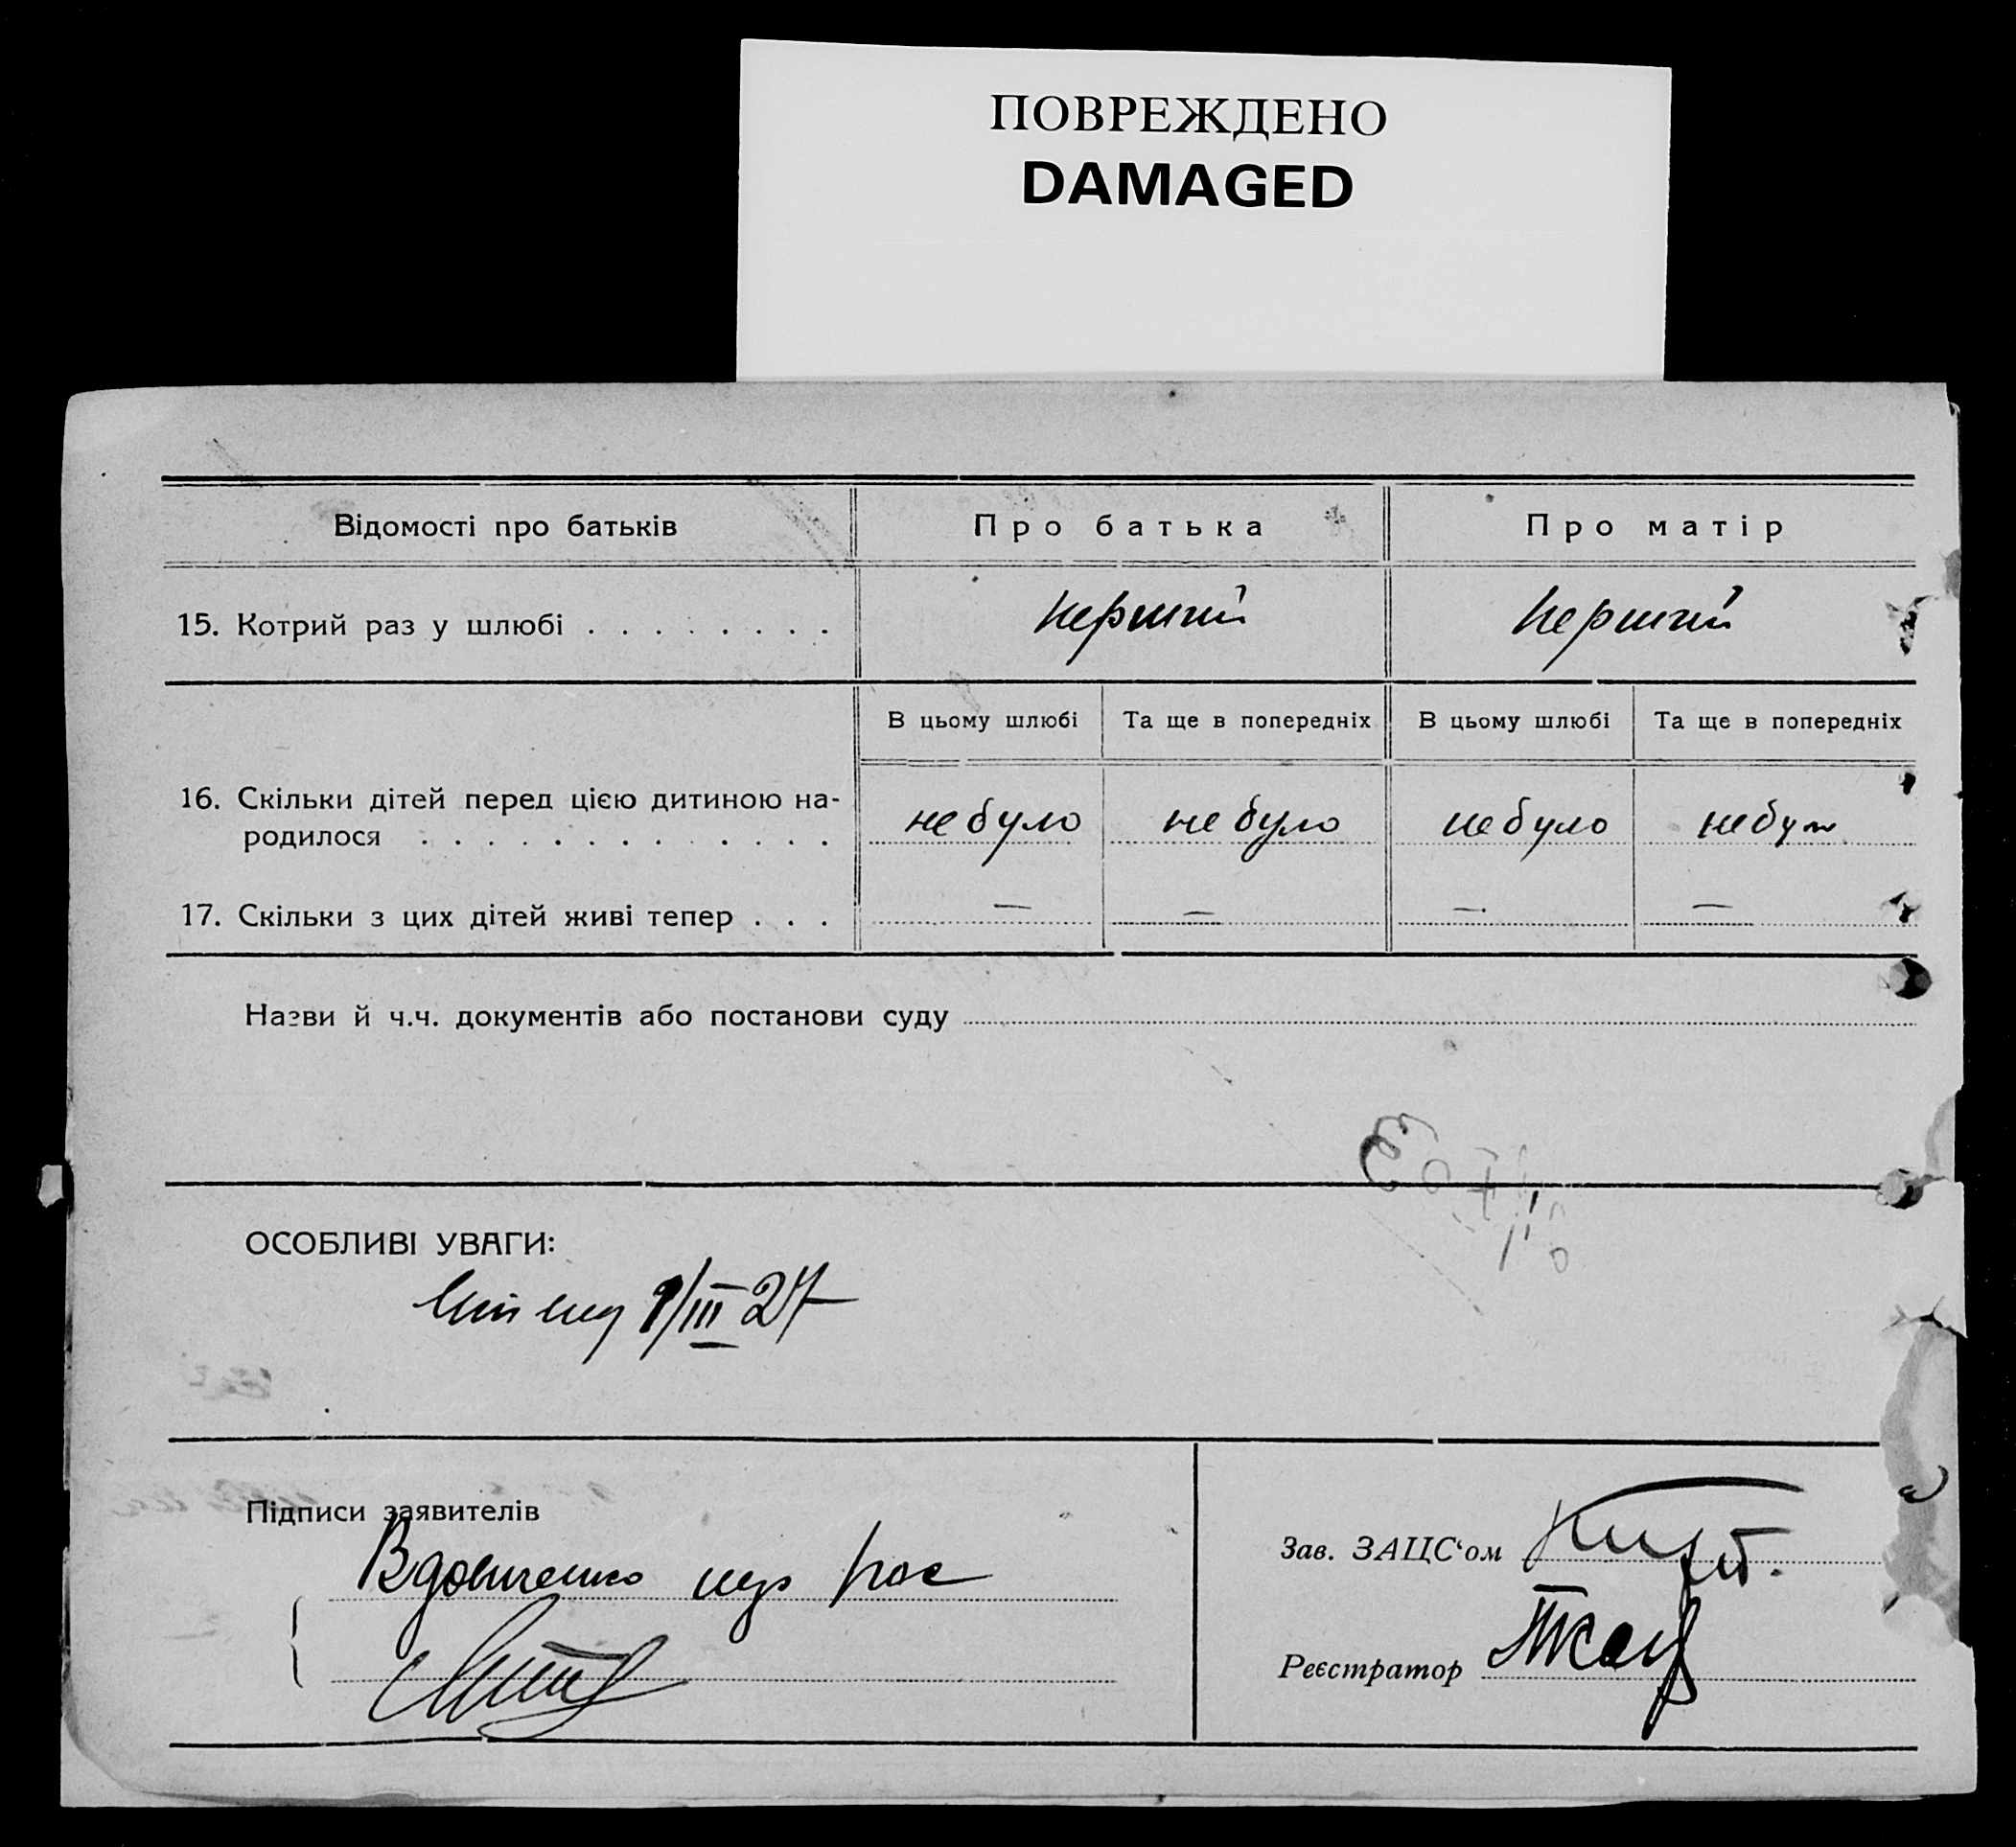 ПОВРЕЖДЕНО
DAMAGED
Відомості про батьків Про батька Про матір
15. Котрий раз у шлюбі . . . . . . . . перший перший
В цьому шлюбі Та ще в попередніх В цьому шлюбі Та ще в попередніх
16. Скільки дітей перед цією дитиною на-
родилося . . . . . . . . . . . . . не було не було не було не було
17. Скільки з цих дітей живі тепер . . . — — — —
Назви й ч.ч. документів або постанови суду
ОСОБЛИВІ УВАГИ:
9/III 27
Підписи заявителів
Вдовиченко
Зав. ЗАЦС‘ом
Реєстратор